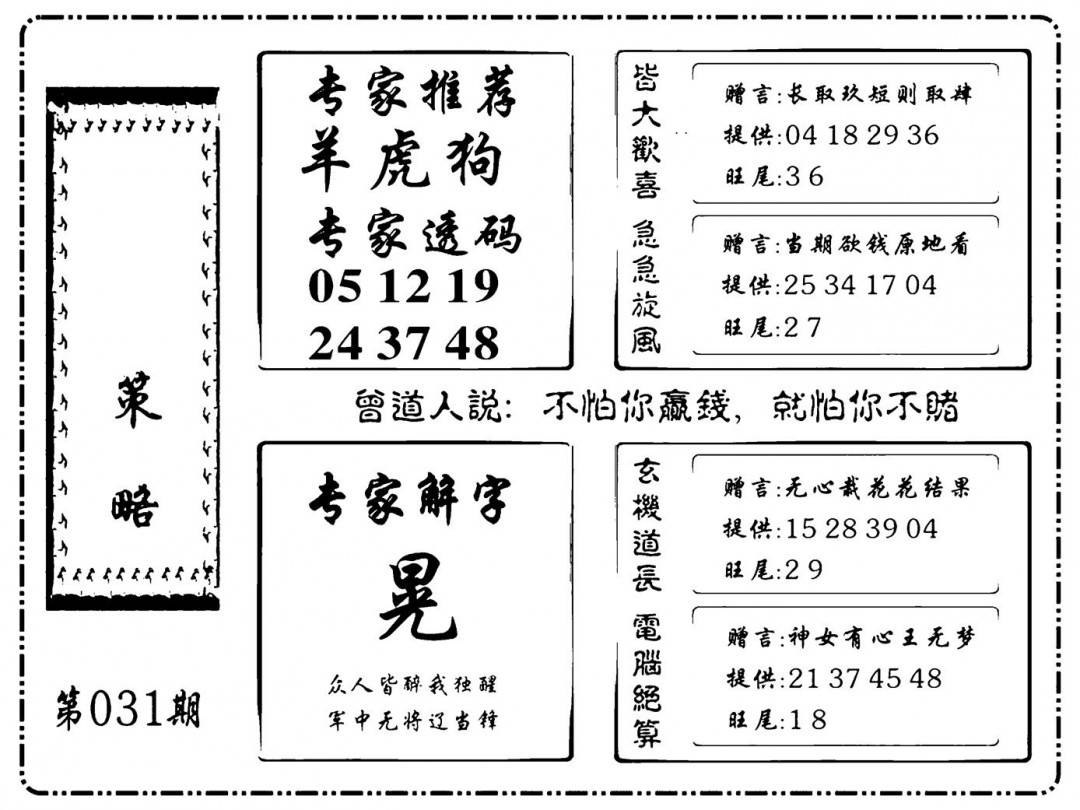 策略
第031期
专家推荐
羊虎狗
专家透码
05 12 19
24 37 48
皆大歡喜
赠言:长取玖短则取肆
提供:04 18 29 36
旺尾:3 6
急急旋風
赠言:当期欲钱原地看
提供:25 34 17 04
旺尾:2 7
曾道人説: 不怕你贏錢, 就怕你不賭
专家解字
晃
众人皆醉我独醒
军中无将辽当锋
玄機道長
赠言:无心栽花花结果
提供:15 28 39 04
旺尾:2 9
電腦絕算
赠言:神女有心王无梦
提供:21 37 45 48
旺尾:1 8